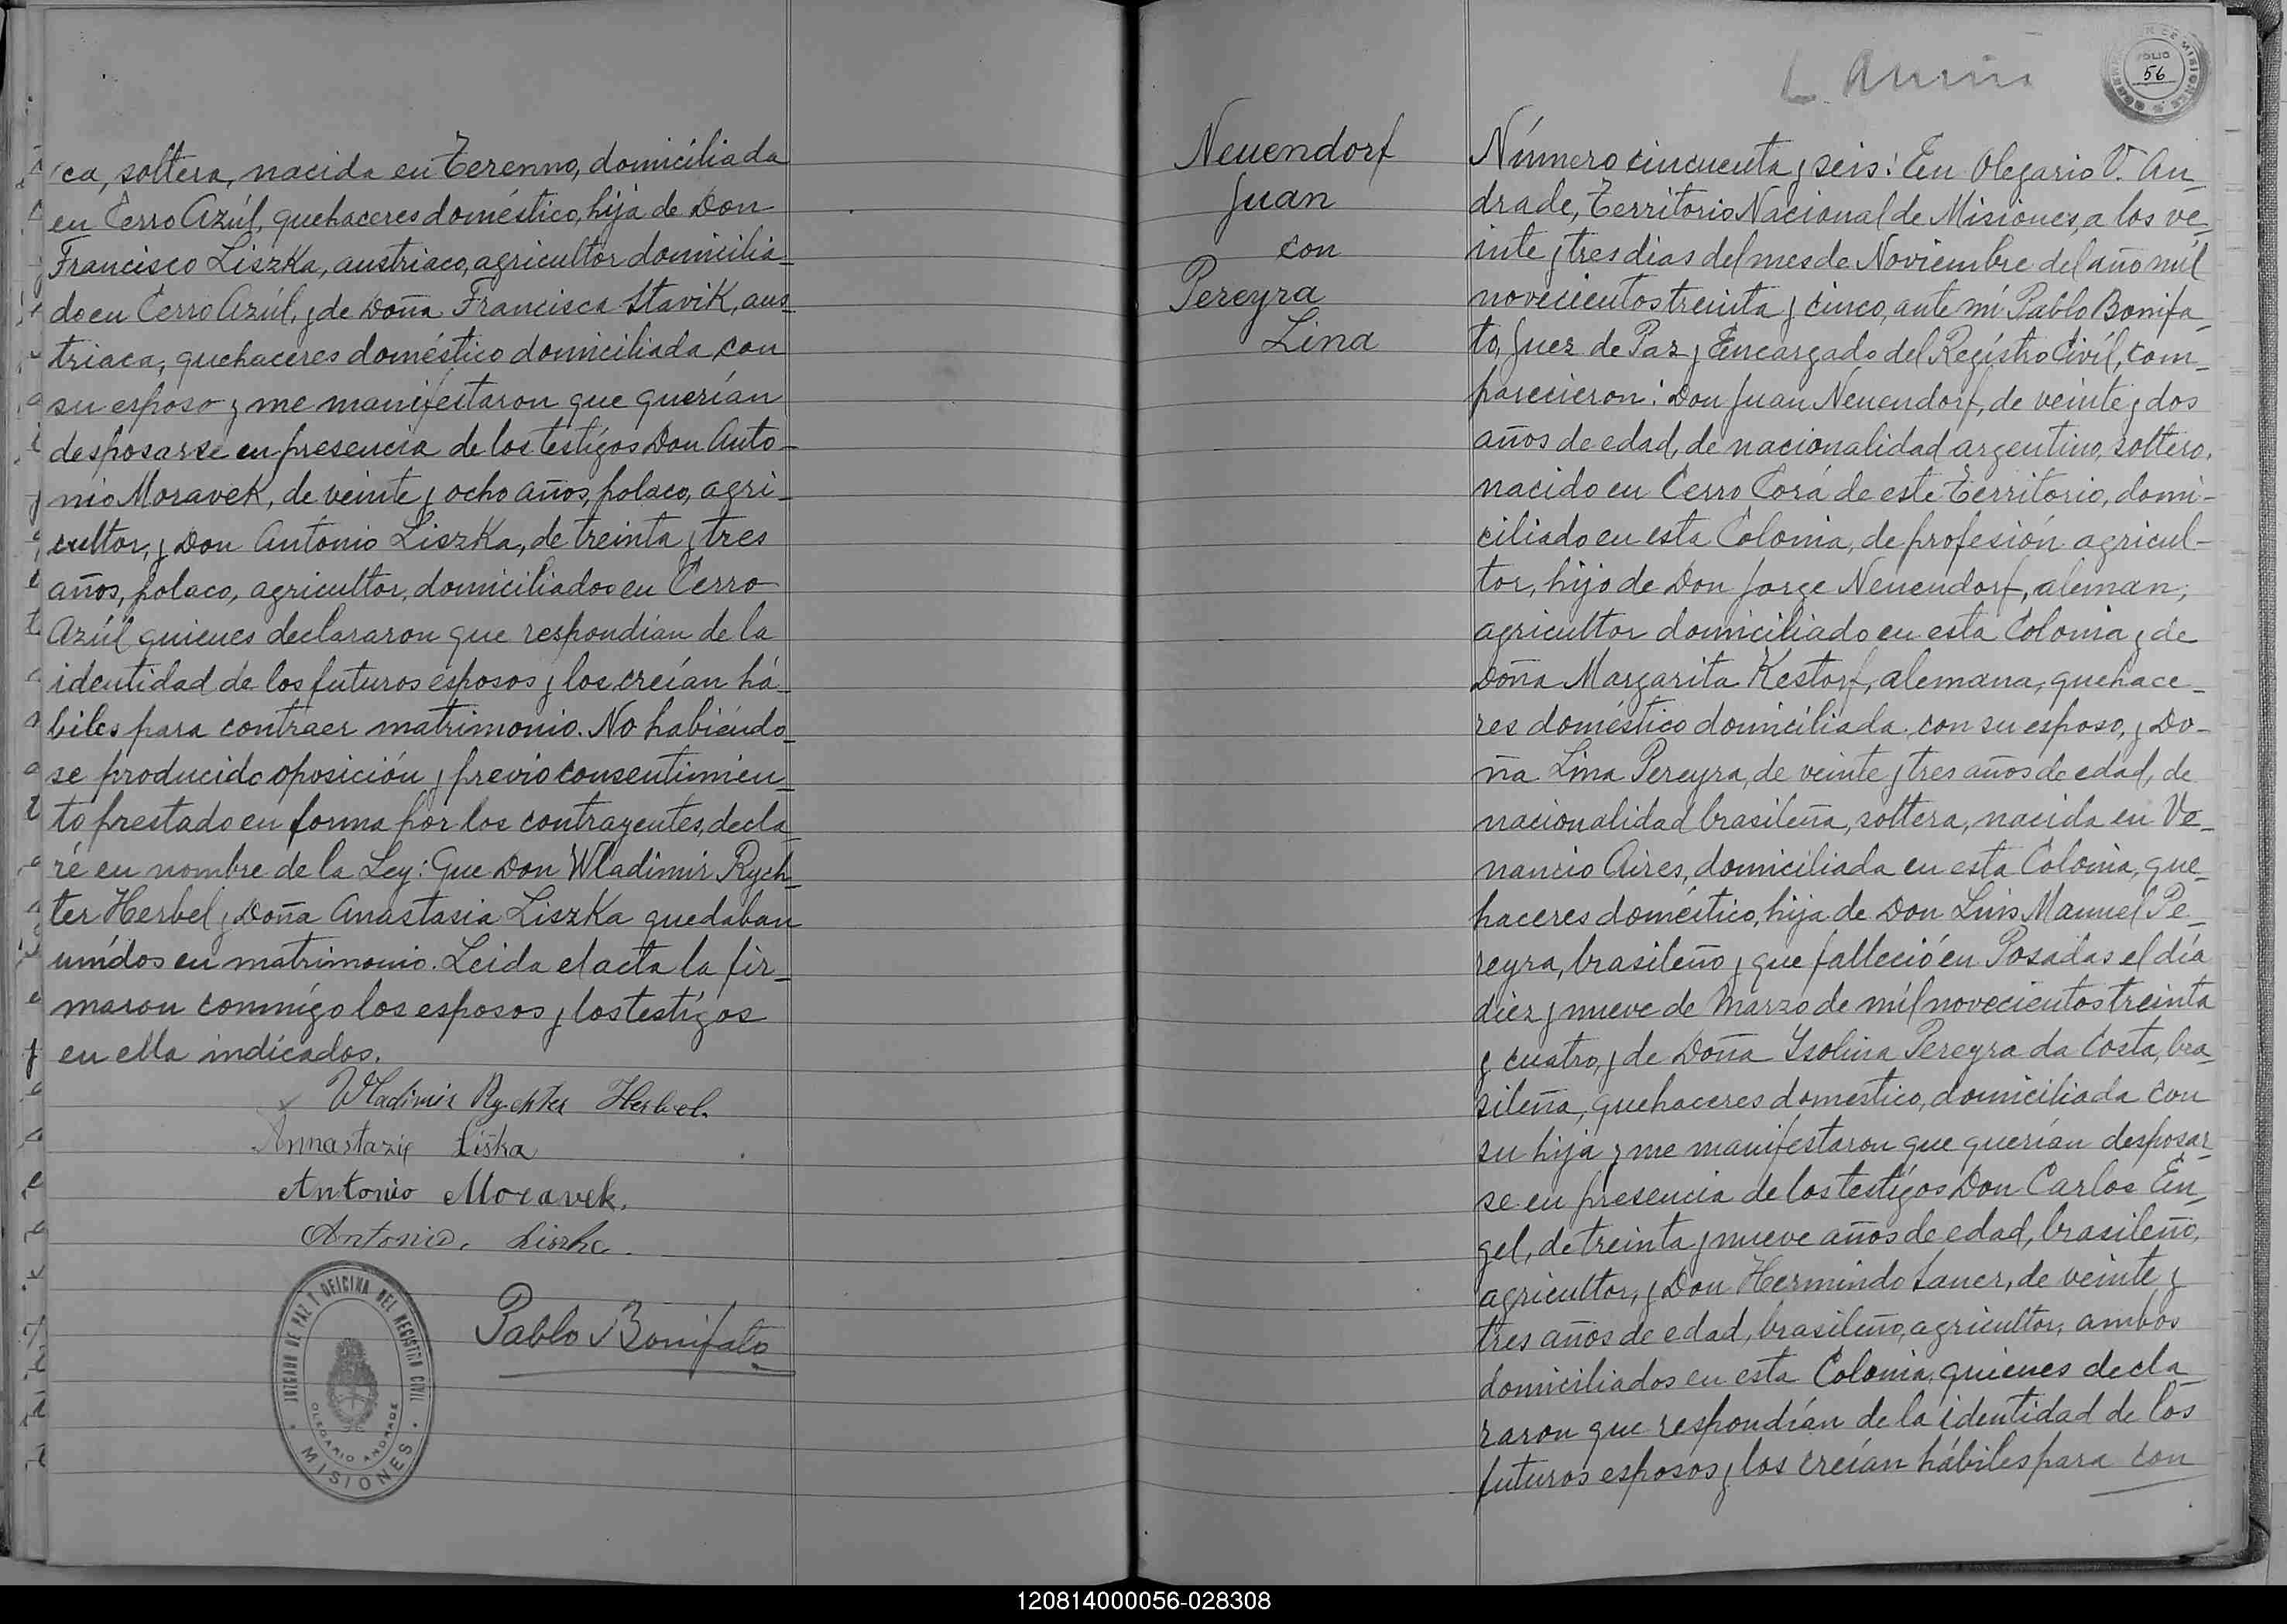 ca, soltera, nacida en Terenno, domiciliada
en Cerro Azúl, quehaceres doméstico, hija de Don
Francisco Liszka, austriaco, agricultor domicilia-
do en Cerro Azúl, y de Doña Francisca Stavik, aus-
triaca, quehaceres doméstico domiciliada con
su esposo y me manifestaron que querían
desposarse en presencia de los testígos Don Anto-
nio Moravek, de veinte y ocho años, polaco, agri-
cultor, y Don Antonio Liszka, de treinta y tres
años, polaco, agricultor, domiciliados en Cerro
Azúl quienes declararon que respondian de la
identidad de los futuros esposos y los creían há-
biles para contraer matrimonio. No habiéndo-
se producido oposición y previo consentimien-
to prestado en forma por los contrayentes, decla-
ré en nombre de la Ley: Que Don Wladimir Rych-
ter Herbel y Doña Anastasia Liszka quedaban
unídos en matrimonio. Leida el acta la fir-
maron conmígo los esposos y los testígos
en ella indicados.
Wladimir Rychter Herbel.
Annastazie Liška
Antonio Moravek.
Antonio. Liszka.
Pablo Bonifato
JUZGADO DE PAZ Y OFICINA DEL REGISTRO CIVIL
OLEGARIO ANDRADE
MISIONES
FOLIO
56
Neuendorf
Juan
con
Pereyra
Lina
Número cincuenta y seis: En Olegario V. An-
drade, Territorio Nacional de Misiones, a los ve-
inte y tres dias del mes de Noviembre del año míl
novecientos treinta y cinco, ante mí Pablo Bonifa-
to, Juez de Paz y Encargado del Regístro Civíl, com-
parecieron: Don Juan Neuendorf, de veinte y dos
años de edad, de nacionalidad argentino, soltero,
nacido en Cerro Corá de este Territorio, domi-
ciliado en esta Colonia, de profesión agricul-
tor, hijo de Don Jorge Neuendorf, aleman,
agricultor domiciliado en esta Colonia y de
Doña Margarita Kestorf, alemana, quehace-
res doméstico domiciliada con su esposo, y Do-
ña Lina Pereyra, de veinte y tres años de edad, de
nacionalidad brasileña, soltera, nacida en Ve-
nancio Aires, domiciliada en esta Colonia, que-
haceres doméstico, hija de Don Luis Manuel Pe-
reyra, brasileño y que falleció en Posadas el día
diez y nueve de Marzo de míl novecientos treinta
y cuatro, y de Doña Ysolina Pereyra da Costa, bra-
sileña, quehaceres domestico, domiciliada con
su hija y me manifestaron que querían desposar-
se en presencia de los testígos Don Carlos En-
gel, de treinta y nueve años de edad, brasileño,
agricultor, y Don Hermindo Lauer, de veinte y
tres años de edad, brasileño, agricultor, ambos
domiciliados en esta Colonia, quienes decla-
raron que respondían de la identidad de los
futuros esposos y los creían hábiles para con
120814000056-028308